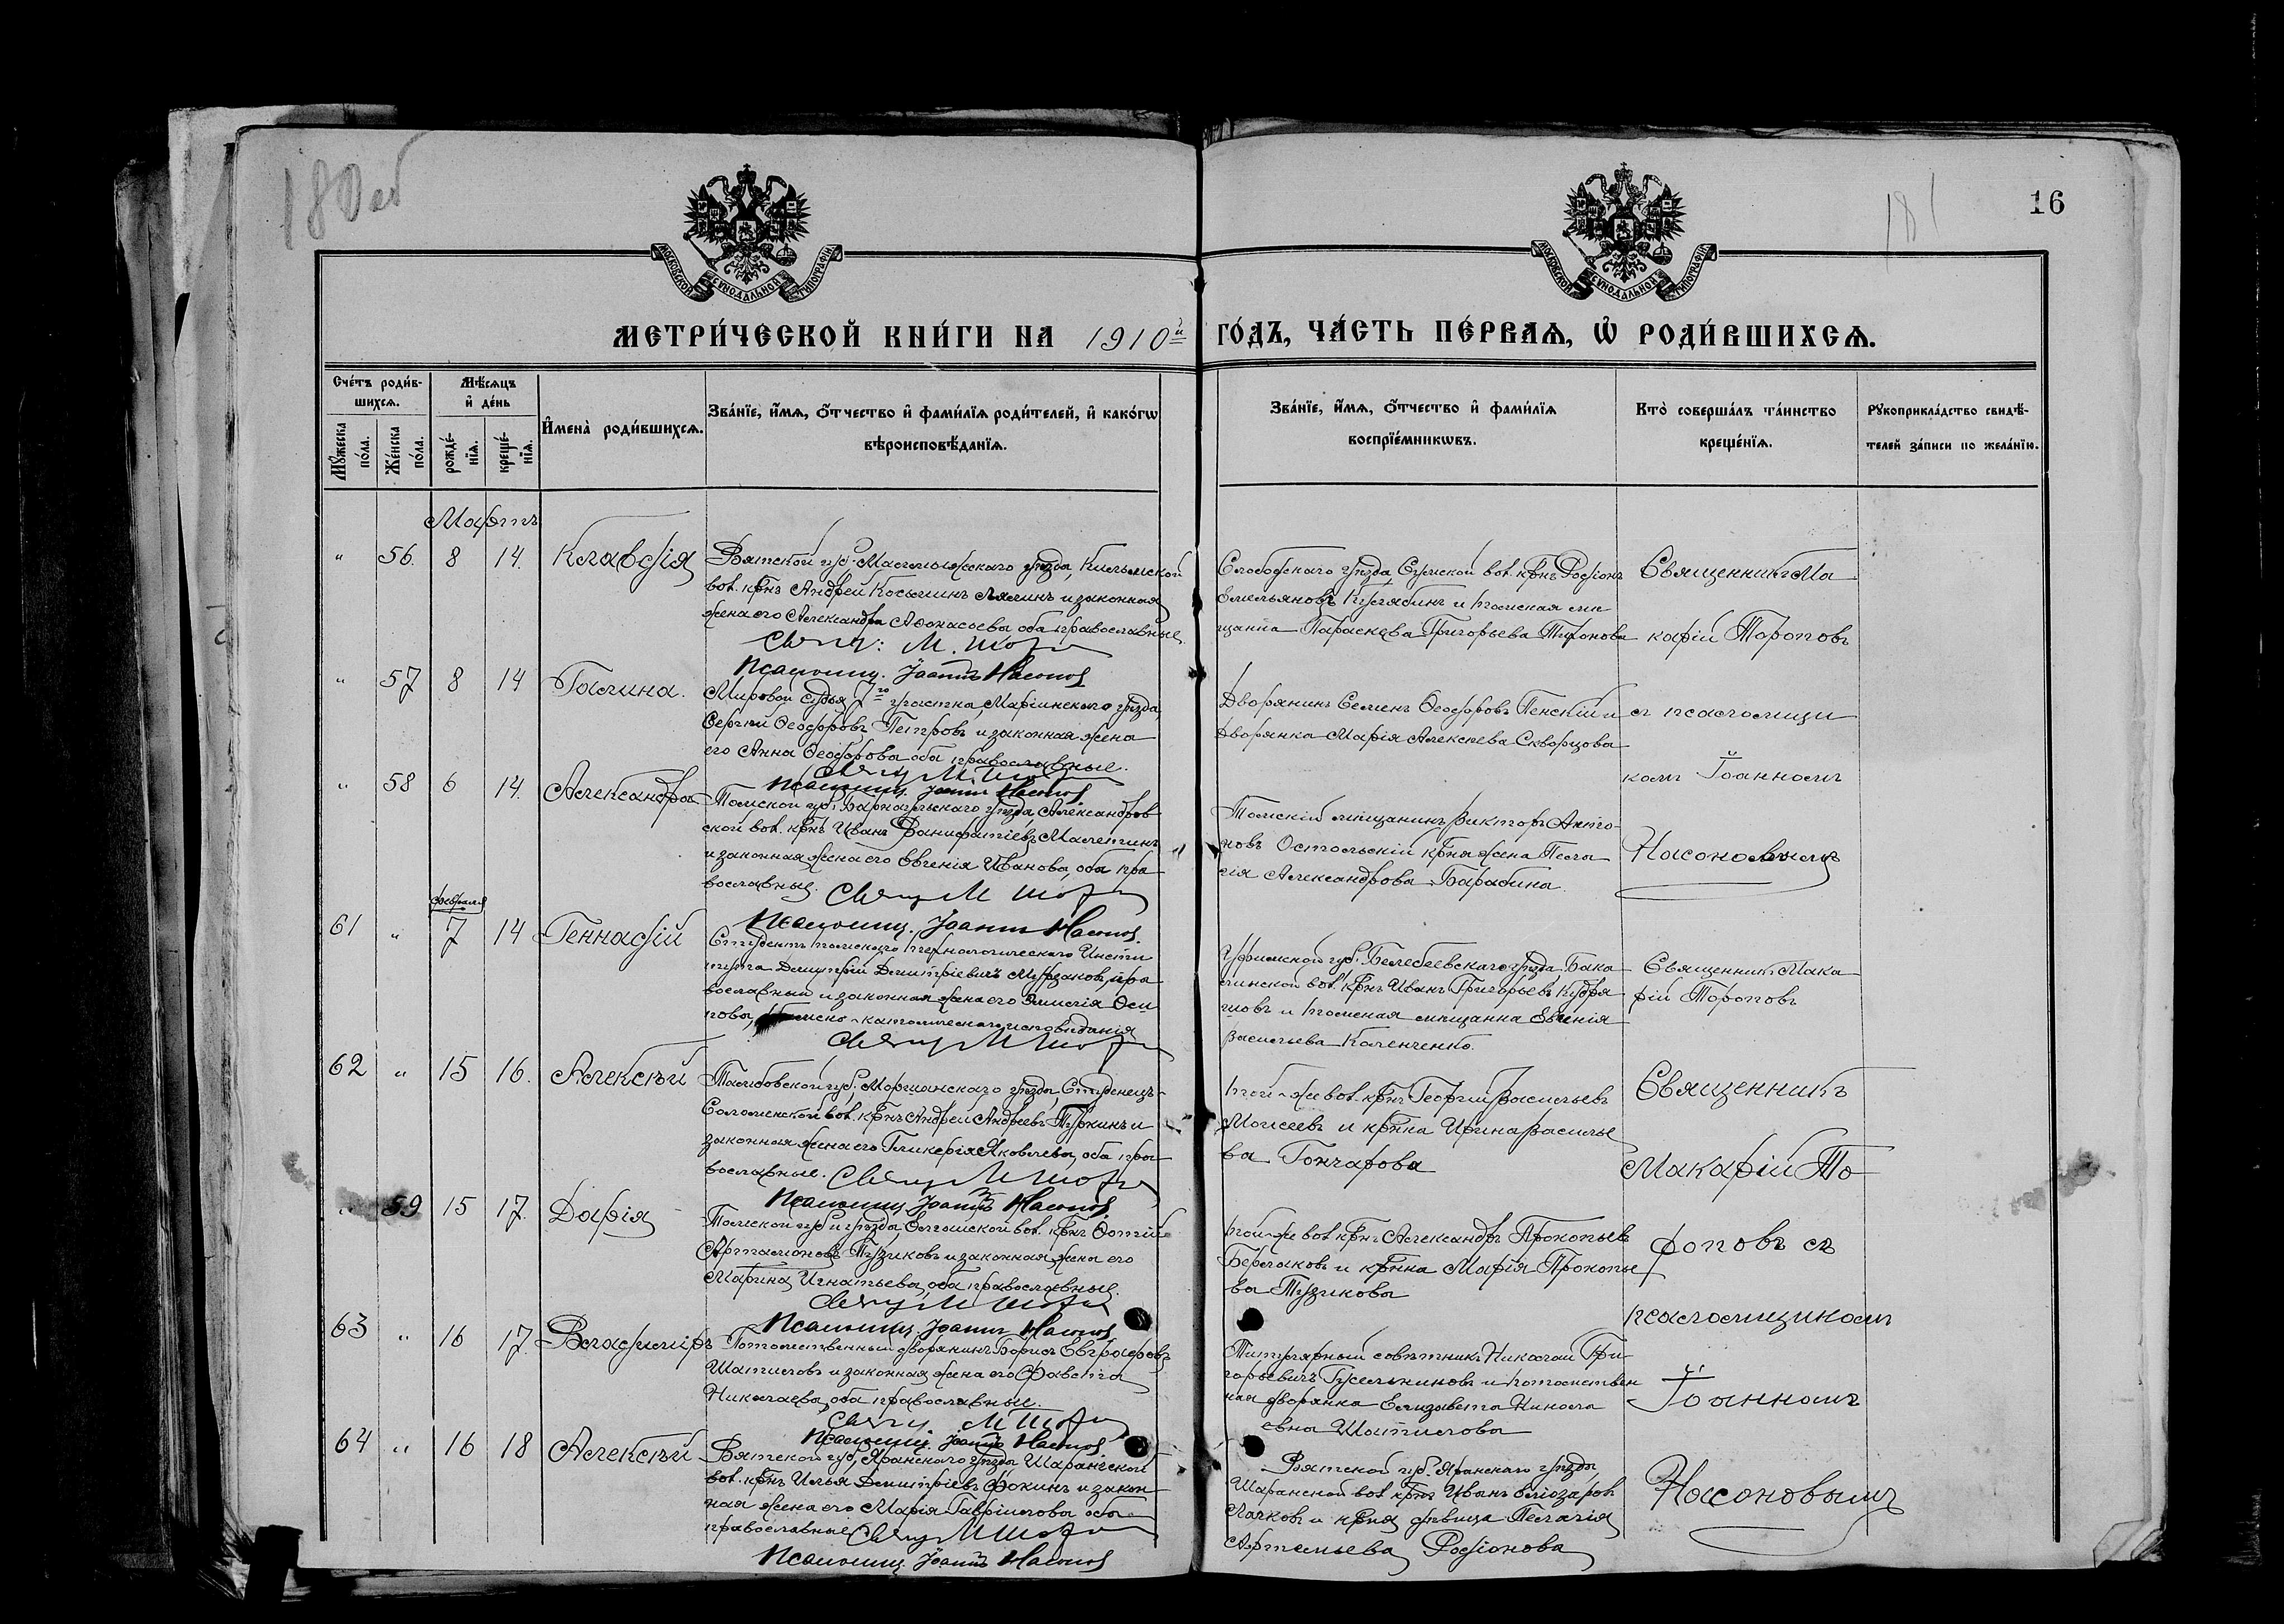 180 об
181
16
МОСКОВСКОЙ СУНОДАЛЬНОЙ ТИПОГРАФІИ
МОСКОВСКОЙ СУНОДАЛЬНОЙ ТИПОГРАФІИ
МЕТРИ́ЧЕСКОЙ КНИ́ГИ НА 1910й ГО́ДЪ, ЧА́СТЬ ПЕ́РВАѦ, Ѡ РОДИ́ВШИХСѦ.
Сче́тъ роди́в-
шихсѧ.
Мꙋ́жеска по́ла.
Же́нска по́ла.
Мѣ́сѧцъ
и де́нь
рожде́-
нїѧ.
креще́-
нїѧ.
Имена̀ роди́вшихсѧ.
Зва́нїе, и́мѧ, ѻ́тчество и фами́лїѧ роди́телей, и како́гѡ
вѣроисповѣ́данїѧ.
Зва́нїе, и́мѧ, ѻ́тчество и фами́лїѧ
воспрїе́мникѡвъ.
Кто̀ соверша́лъ та́инство
креще́нїѧ.
Рꙋкоприкла́дство свидѣ́-
телей за́писи по жела́нїю.
Мартъ
" 56. 8 14. Клавдія
Вятской губ. Малмыжскаго уѣзда, Кильмской
вол. крнъ Андрей Косьминъ Лялинъ и законная
жена его Александра Аѳонасьева оба православные
Свящ: М. Торо
Псаломщ. Іоаннъ Насонов
Слободскаго уѣзда, Сумской вол. крнъ Родіонъ
Емельяновъ и томская мѣ
щанка Параскева Григорьева
Священникъ Ма
карій Тороповъ
" 57 8 14 Галина.
Мировой Судья 7го участка, Маріинскаго уѣзда,
Сергѣй Ѳеодоровъ Петровъ и законная жена
его Анна Ѳеодорова оба православные.
Свящ М. Торо
Псаломщ. Іоаннъ Насонов
Дворянинъ Семенъ Ѳеодоровъ Пенскій и
Дворянка Марія Алексѣева Скворцова
съ псаломщи
комъ Іоанномъ
" 58 6 14. Александра
Томской губ. Барнаульскаго уѣзда, Александров
ской вол. крнъ Иванъ Ванифатіевъ Малетинъ
и законная жена его Евгенія Иванова, оба пра
вославные. Свящ М Торо
Псаломщ. Іоаннъ Насонов.
Томскій мѣщанинъ Викторъ Анто-
новъ Остольскій крня жена Пела
гія Александрова Барабина.
Насоновымъ
февраля
61 " 7 14 Геннадій
Студентъ томскаго технологическаго Инсти
тута Димитрій Димитріевичъ правос
вославный и законная жена его Эмилія Оси
пова, Римско-католическаго исповѣданія
Свящ М Торо
Уфимской губ. Белебеевскаго уѣзда, Бака
линской вол. крнъ Иванъ Григорьевъ Кудря
шовъ и томская мѣщанка Евгенія
Васильева Коленченко.
Священникъ Мака
рій Тороповъ
62 " 15 16. Алексѣй
Тамбовской губ. Моршанскаго уѣзда, Студенецъ-
Соломенской вол. крнъ Андрей Андреевъ Туркинъ и
законная жена его Гликерія Яковлева, оба пра
вославные. Свящ М Торо
Псаломщ Іоаннъ Насонов
той-же вол. крнъ Георгій Васильевъ
Моисеевъ и крнка Ирина Василье
ва Гончарова
Священникъ
Макарій То
" 59 15 17. Дарія
Томской губ и уѣзда, вол. крнъ Ѳотій
Артамоновъ Пузиковъ и законная жена его
Марина Игнатьева, оба православные.
Свящ М Торо
Псаломщ Іоаннъ Насонов
той-же вол крнъ Александръ Прокопьевъ
и крнка Марія Прокопье
ва Пузикова
роповъ съ
псаломщикомъ
63 " 16 17. Владиміръ
Потомственный дворянинъ Борисъ Евграфовъ
Шатиловъ и законная жена его Фавста
Николаева, оба православные.
Свящ М Торо
Псаломщ. Іоаннъ Насонов
Титулярный совѣтникъ Николай Гри-
горьевичъ Гусельниковъ и потомствен
ная дворянка Елизавета Никола
евна Шатилова
Іоанномъ
64 " 16 18 Алексѣй
Вятской губ, Яранскаго уѣзда Шарангской
вол. крнъ Илья Димитріевъ Фокинъ и закон
ная жена его Марія Гавріилова оба
православные Свящ М Торо
Псаломщ. Іоаннъ Насонов
Вятской губ. Яранскаго уѣзда
Шаранской вол крнъ Иванъ Еліозаровъ
и крня дѣвица Пелагія
Артемьева Родіонова
Насоновымъ